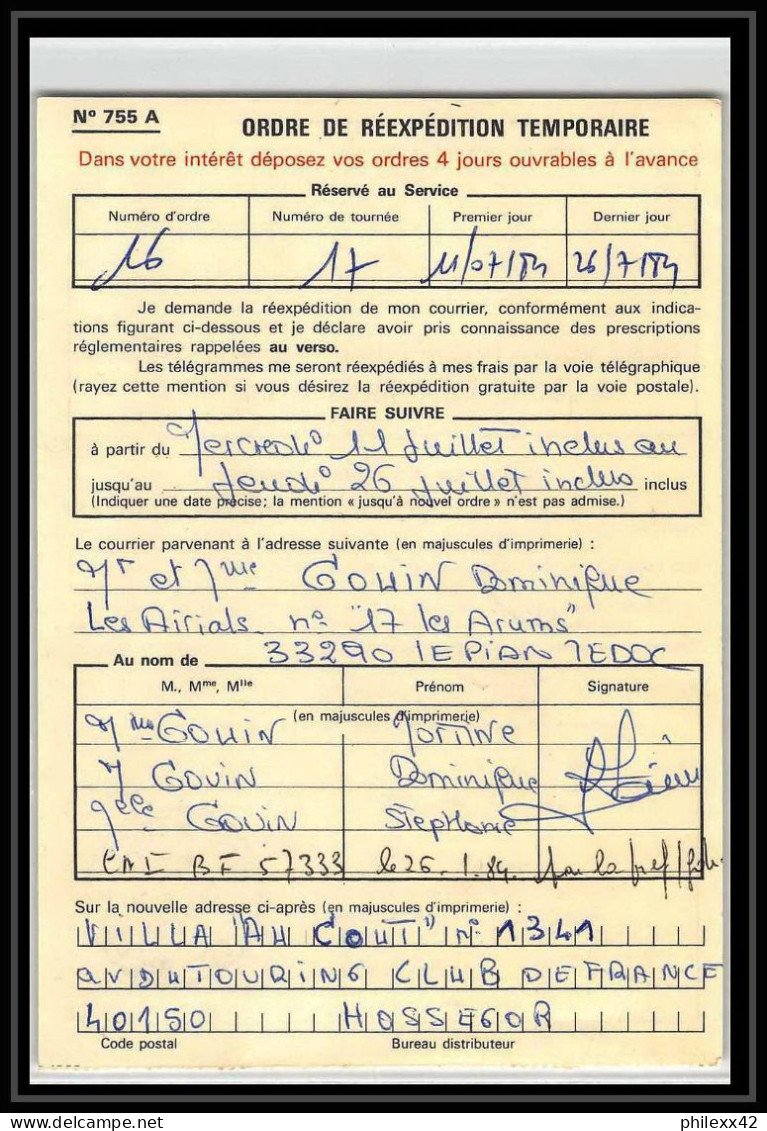 N° 755 A
ORDRE DE RÉEXPÉDITION TEMPORAIRE
Dans votre intérêt déposez vos ordres 4 jours ouvrables à l'avance
Réservé au Service
Numéro d'ordre Numéro de tournée Premier jour Dernier jour
16 17 11/07/84 26/7/84
Je demande la réexpédition de mon courrier, conformément aux indica-
tions figurant ci-dessous et je déclare avoir pris connaissance des prescriptions
réglementaires rappelées au verso.
Les télégrammes me seront réexpédiés à mes frais par la voie télégraphique
(rayez cette mention si vous désirez la réexpédition gratuite par la voie postale).
FAIRE SUIVRE
à partir du Mercredi 11 Juillet inclus au
jusqu'au Jeudi 26 Juillet inclus inclus
(Indiquer une date précise; la mention « jusqu'à nouvel ordre » n'est pas admise.)
Le courrier parvenant à l'adresse suivante (en majuscules d'imprimerie) :
Mr et Mme GOUIN Dominique
Les Airials n° "17 les Arums"
33290 LE PIAN MEDOC
Au nom de
M., Mme, Mlle Prénom Signature
(en majuscules d'imprimerie)
Mme GOUIN
M GOUIN Dominique
Melle GOUIN Stephanie
CNI BF 57333 le 26.1.84. par la pref
Sur la nouvelle adresse ci-après (en majuscules d'imprimerie) :
VILLA AH COUT n° 1341
AV DU TOURING CLUB DE FRANCE
40150 HOSSEGOR
Code postal Bureau distributeur
philexx42